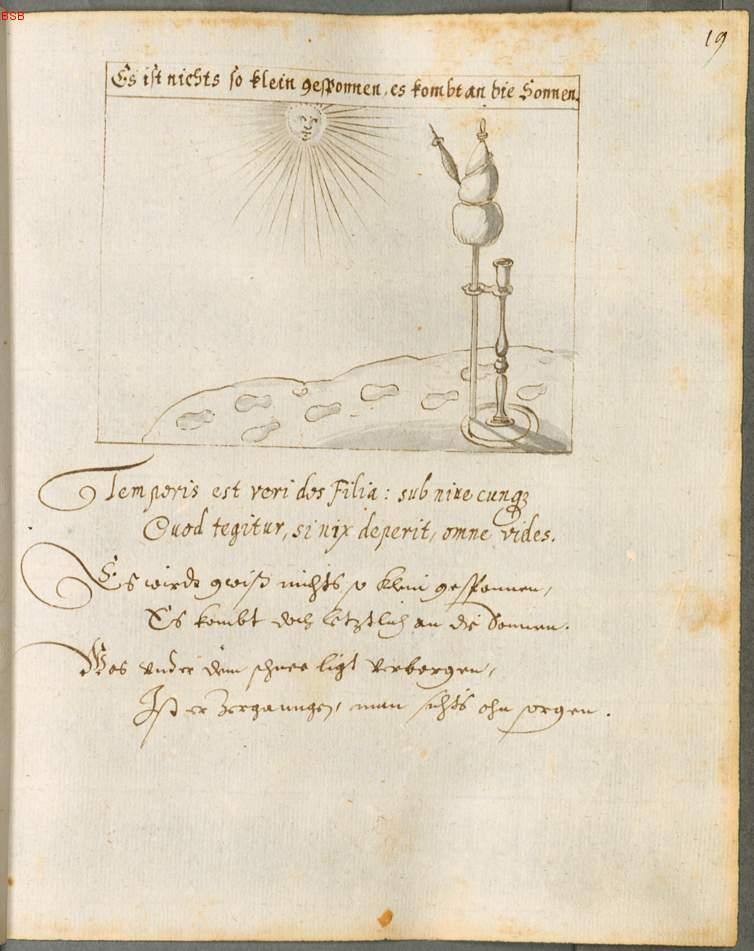 BSB
19
Es ist nichts so klein gesponnen, es kombt an die Sonnen.
Temporis est veri dos Filia: sub niue cunq₃
Quod tegitur, si nix deperit, omne vides.
Es wirdt gwiß nichts so klein gesponnen,
Es kombt doch letztlich an die Sonnen.
Was vnder dem schnee ligt verborgen,
Ist er zergangen, man sichts ohn sorgen.